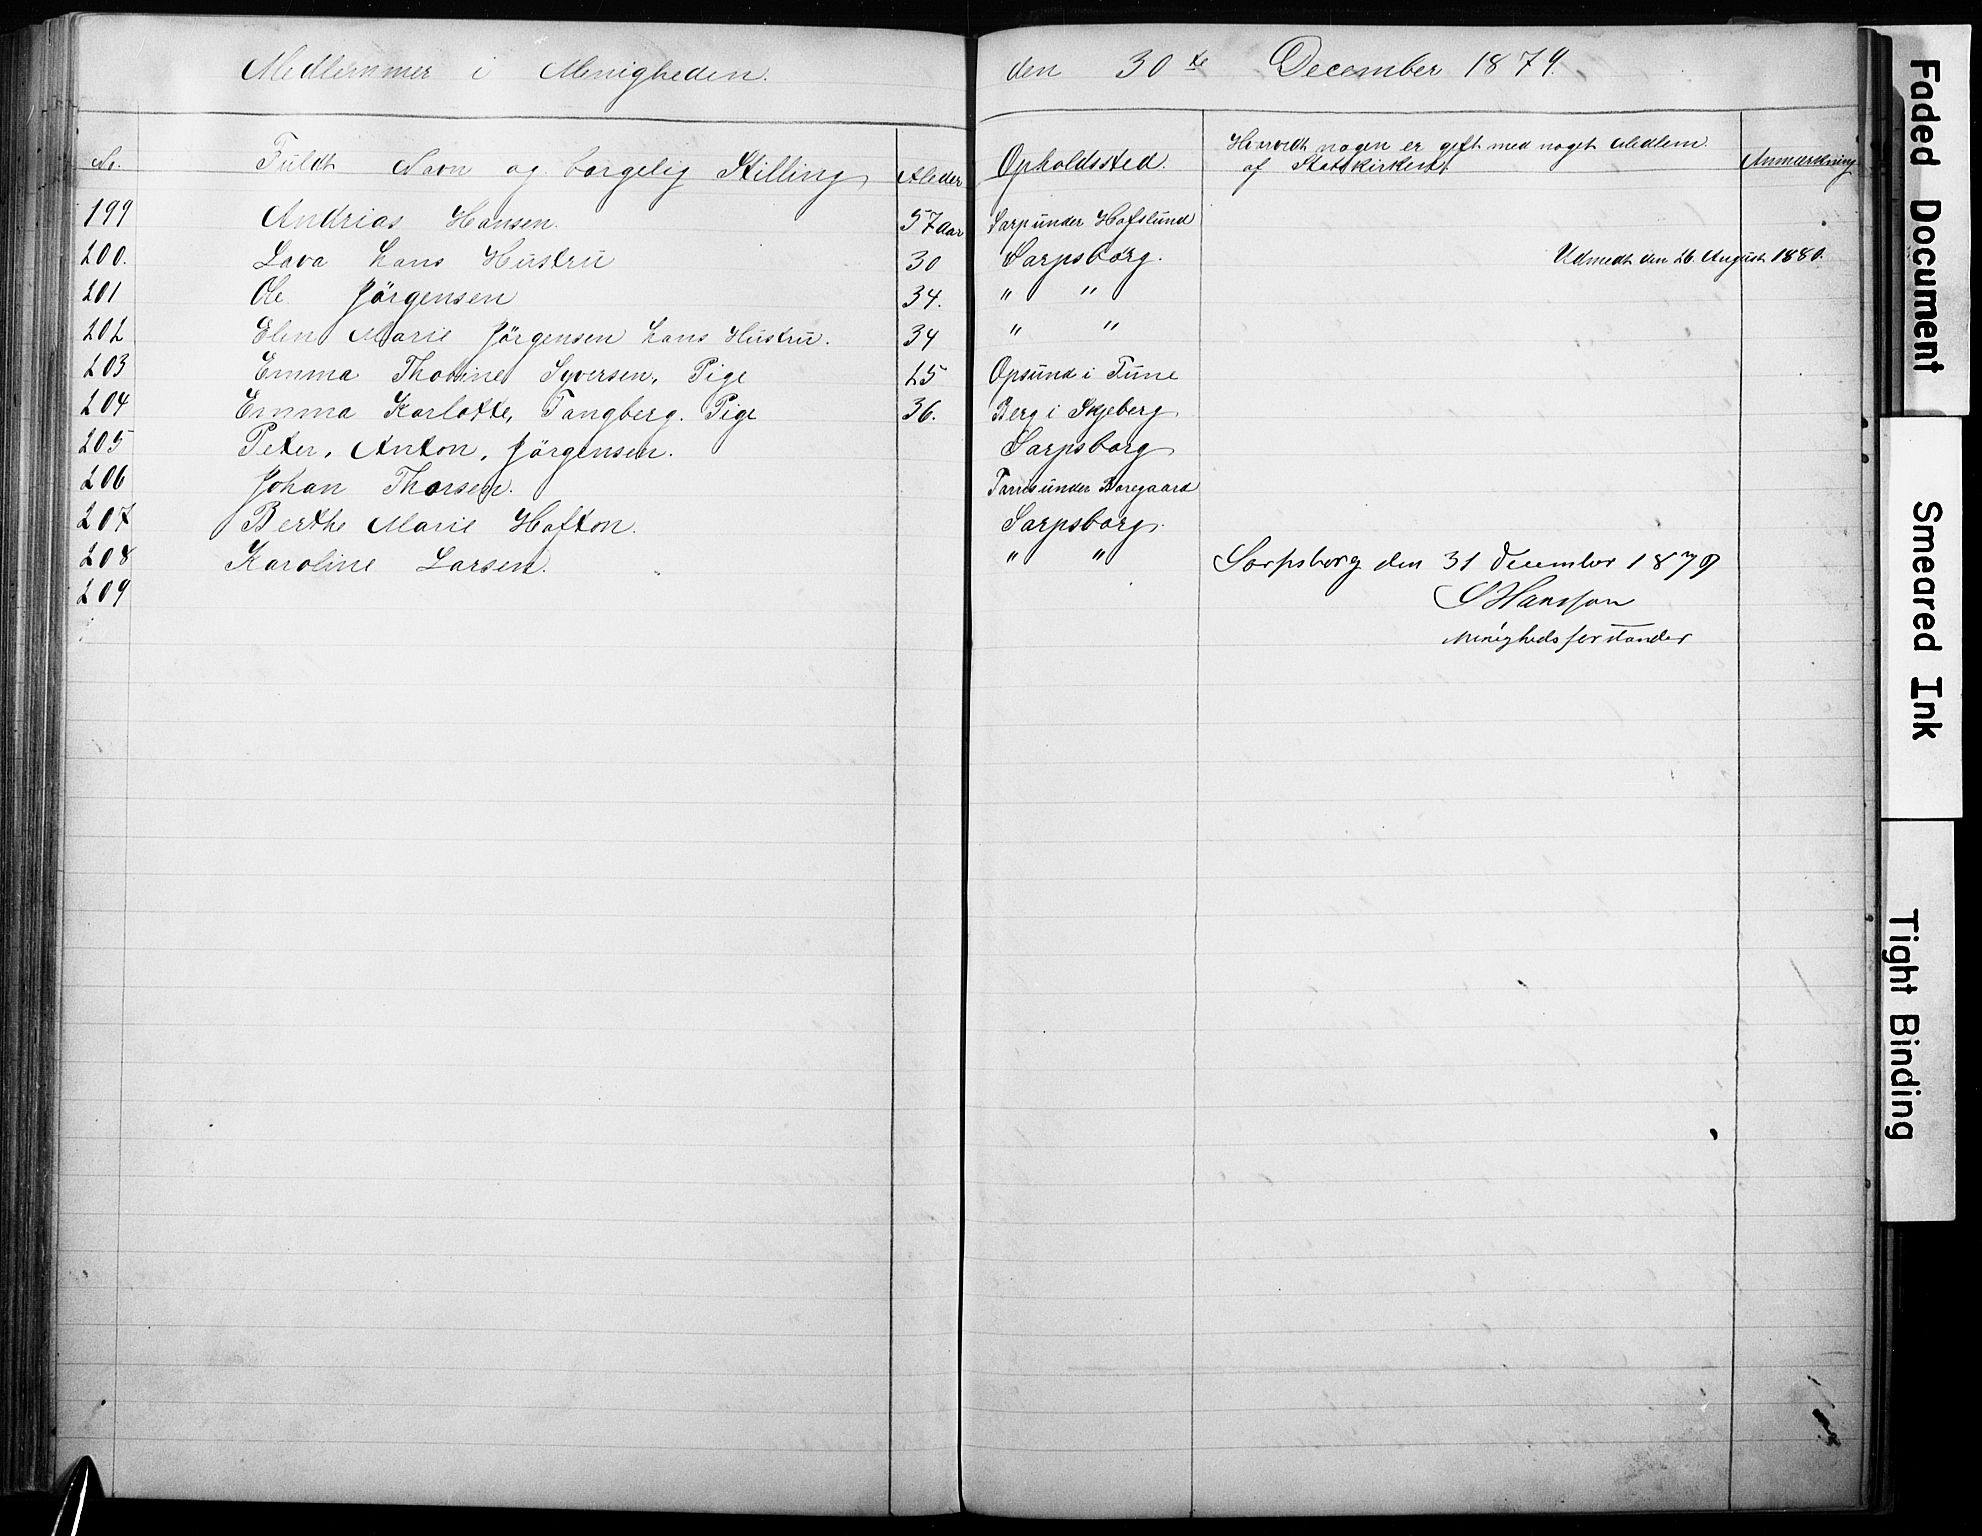 Medlemmer i Menigheden. den 30te December 1879.
No. Fuldt Navn og borgelig Stilling Alder Opholdssted. Hvorvidt nogen er gift med noget Medlem af Statskirken. Anmærkning
199 Andrias Hansen. 57 aar Sarp under Hafslund
200. Lava hans Hustru 30 Sarpsborg. Udmedt den 26 August 1880.
201 Ole Jörgensen 34. " "
202 Elen Marie Jörgensen hans Hustru. 34 " "
203 Emma Thobine Syversen, Pige 25 Opsund i Tune
204 Emma Karlotte, Tangberg. Pige 36. Berg i Skjeberg
205 Peter, Anton, Jörgensen. Sarpsborg
206 Johan Thorsen. under Boregaard
207 Berthe Marie Hafton. Sarpsborg.
208 Karoline Larsen. " " Sarpsborg den 31 December 1879
209 S Hansson
Menighedsforstander
Faded Document
Smeared Ink
Tight Binding